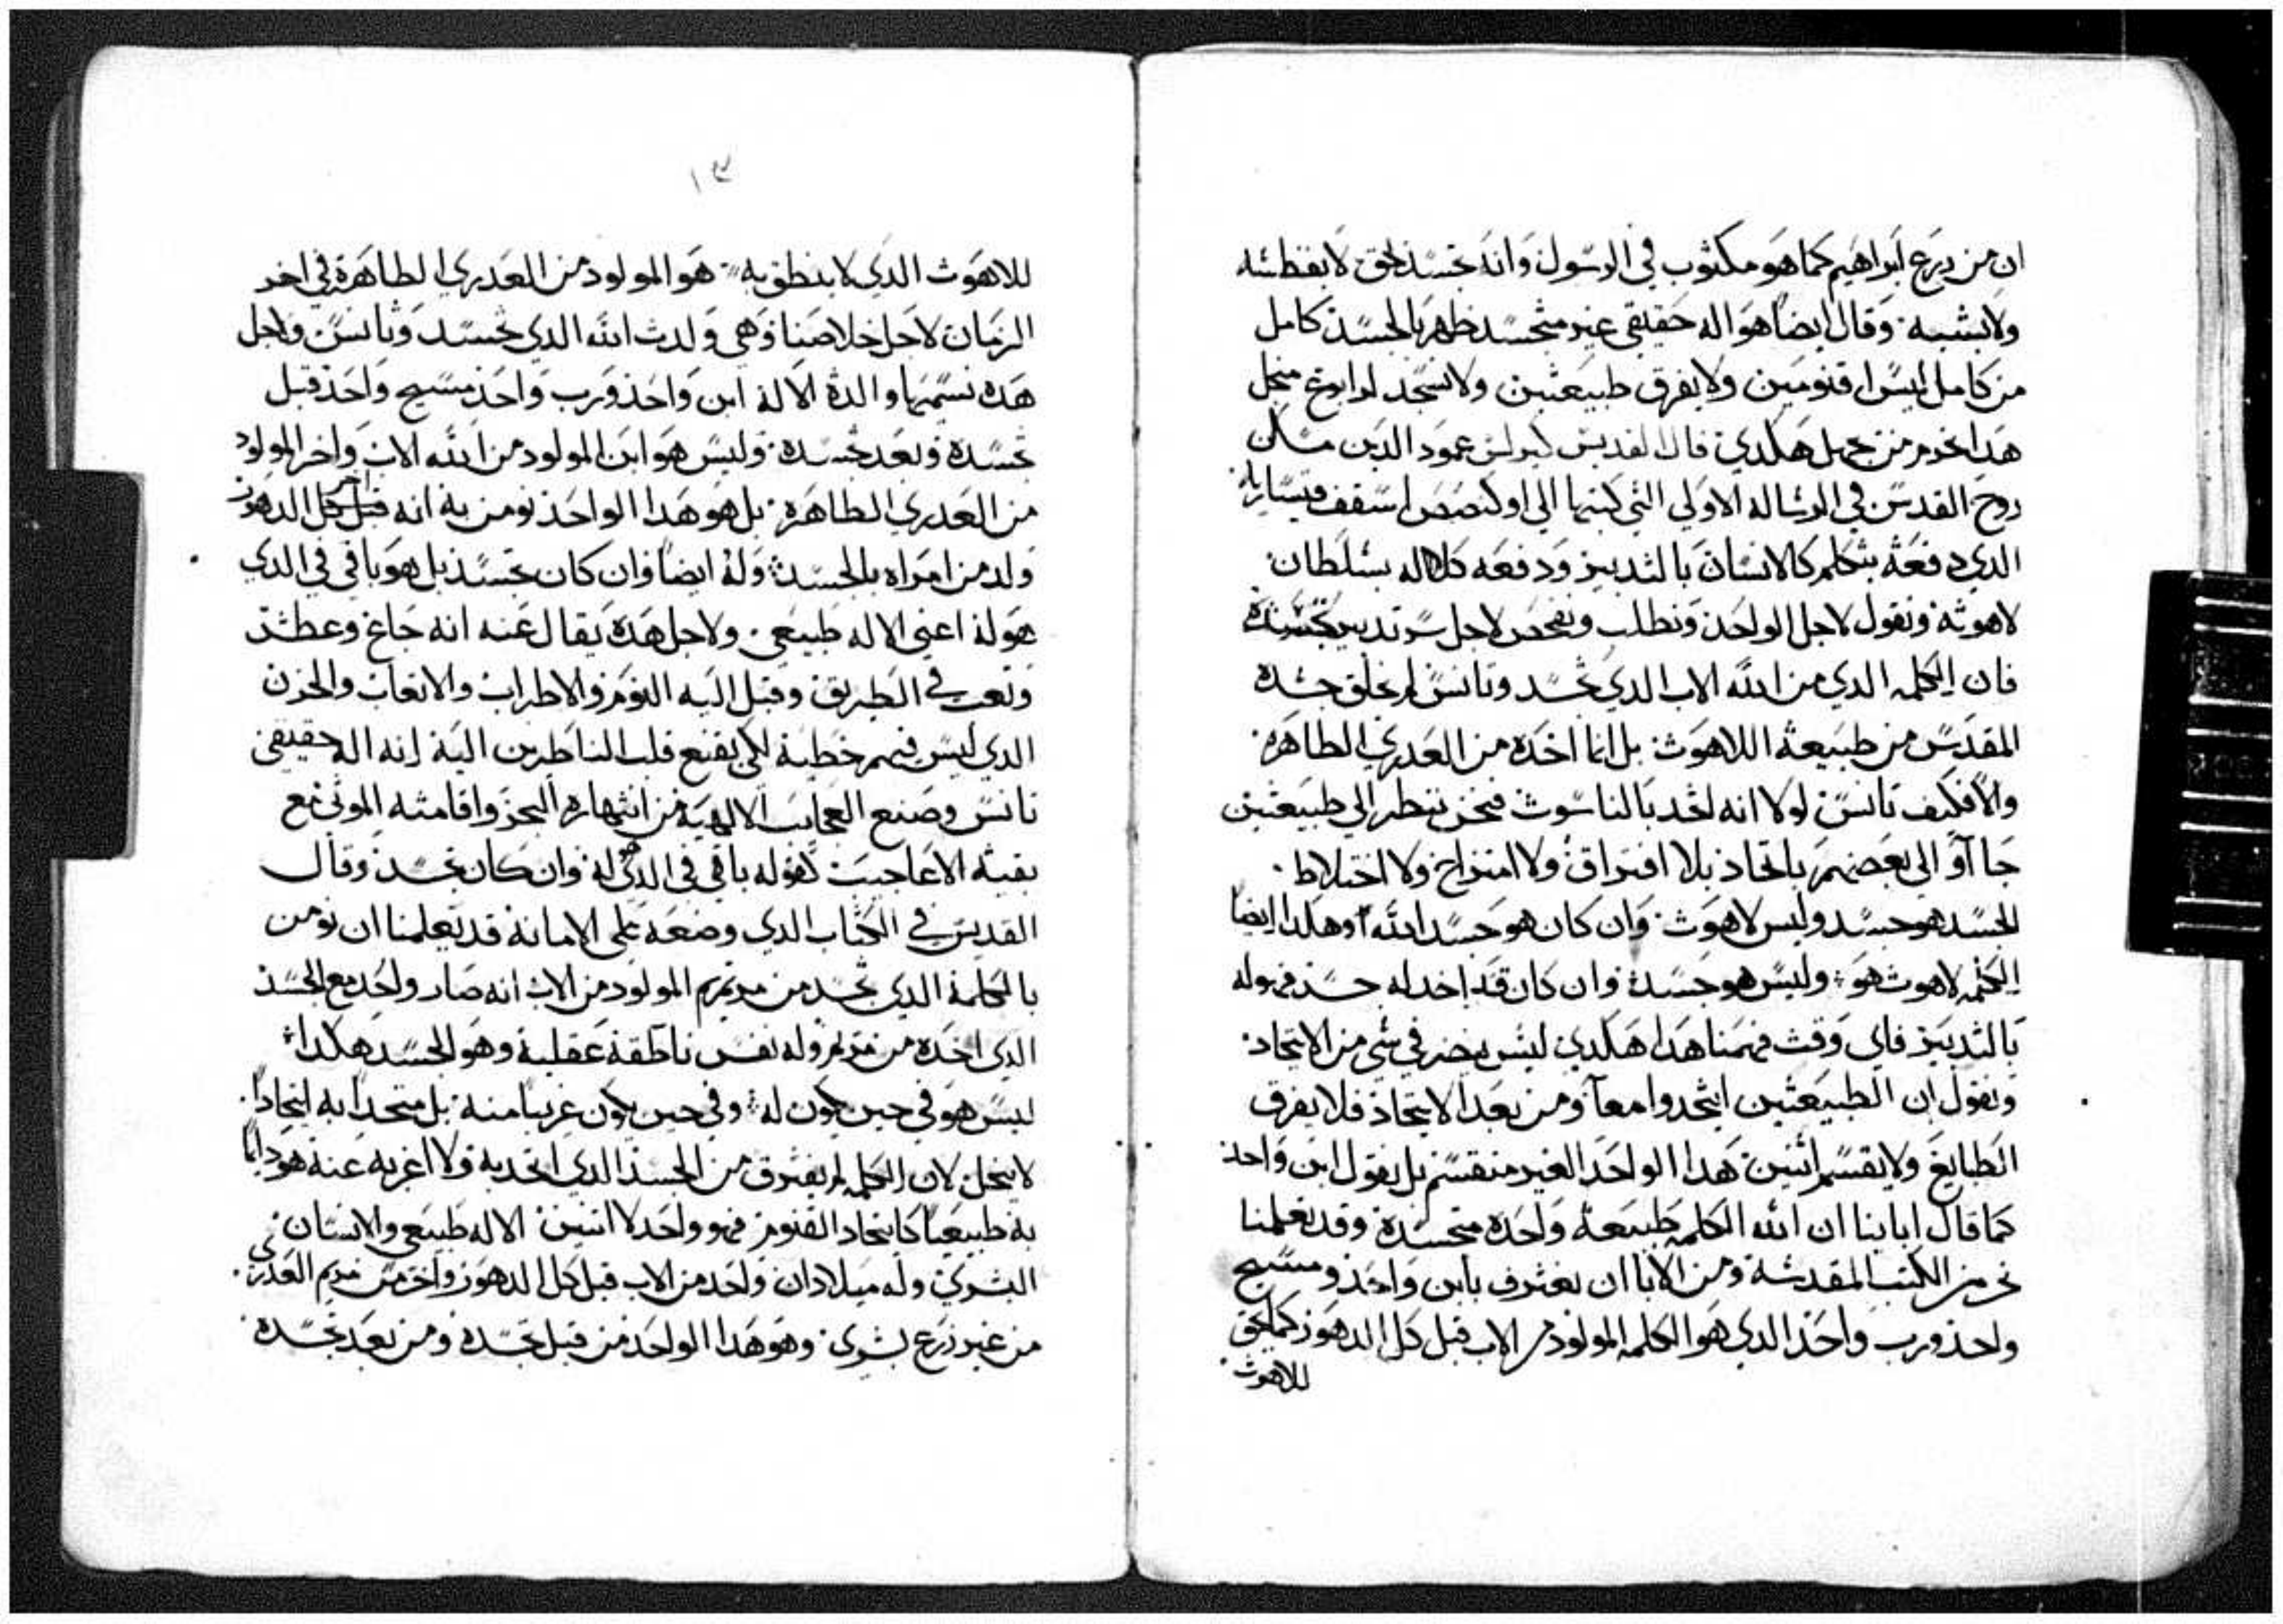 ان من زرع ابراهيم كما هو مكتوب في الرسول وانه تجسد بحق لا بفطسه
ولا بشبه وقال ايضا هو اله حقيقي غير متجسد ظهر بالجسد كامل
من كامل ليس اقنومين ولا يفرق طبيعتين ولا نسجد لاربع
هدا نحرم من هكدي قال القديس كيرلس عمود الدين مسكن
روح القدس في الرساله الاولي التي كتبها الي اسقف قيسارية
الدي دفعة يتكلم كالانسان بالتدبير ودفعه كالاله بسلطان
لاهوته ونقول لاجل الواحد ونطلب ونفحص لاجل سر تدبير تجسده
فان الكلمه الدي من الله الاب الدي تجسد وتانس لم يخلق جسده
المقدس من طبيعة اللاهوت بل انما اخده من العدري الطاهرة
والا فكيف تانس لولا انه اتحد بالناسوت فنحن ننظر الي طبيعتين
جا آو الي بعضهم باتحاد بلا افتراق ولا امتزاج ولا اختلاط
الجسد هو جسد وليس لاهوت وان كان هو جسد الله وهكدا ايضا
الكلمه لاهوت هو وليس هو جسد وان كان قد اخد له جسد فهو له
بالتدبير فاي وقت فهمنا هدا هكدي ليس يضر في شي من الاتحاد
ونقول ان الطبيعتين اتحدوا معا ومن بعد الاتحاد فلا يفرق
الطبايع ولا يقسم اتنين هدا الواحد الغير منقسم بل يقول ابن واحد
كما قال ابابنا ان الله الكلمه طبيعة واحدة متجسدة وقد تعلمنا
نحن من الكتب المقدسة ومن الابا ان نعترف بابن واحد ومسيح
واحد ورب واحد الدي هو الكلمه المولود من الاب قبل كل الدهور كما يحق
للاهوت
١٣
للاهوت الدي لا ينطق به هو المولود من العدري الطاهرة في اخر
الزمان لاجل خلاصنا وهي ولدت الله الدي تجسد وتانس ولاجل
هده نسميها والدة الاله ابن واحد ورب واحد مسيح واحد قبل
تجسده وبعد تجسده وليس هو ابن المولود من الله الاب واخر المولود
من العدري الطاهرة بل هو هدا الواحد نومن به انه قبل كل الدهور
ولد من امراه بالجسد وله ايضا وان كان تجسد بل هو باقي في الدي
هو له اعني الاله طبيعي ولاجل هده يقال عنه انه جاع وعطش
وتعب في الطريق وقبل اليه النوم والاطراب والاتعاب والحزن
الدي ليس فيهم خطية لكي يقنع قلب الناظرين الية انه اله حقيقي
تانس وصنع العجايب الالهية من انتهاره البحر واقامته الموتي مع
بقية الاعاجيب كقوله باقي في الدي له وان كان تجسد وقال
القديس في الكتاب الدي وضعه علي الامانة قد تعلمنا ان نومن
بالكلمة الدي تجسد من مريم المولود من الاب انه صار واحد مع الجسد
الدي اخده من مريم وله نفس ناطقة عقلية وهو الجسد هكدا
ليس هو في حين يكون له وفي حين يكون غريبا منه بل متحدا به اتحادا
لا ينحل لان الكلمه لم يفترق من الجسد الدي اتحد به ولا اغربه عنه هو دايما
به طبيعيا كاتحاد القنوم فهو واحد لا اتنين الاله طبيعي والانسان
البشري وله ميلادان واحد من الاب قبل كل الدهور واخر من مريم العدري
من غير زرع بشري وهو هدا الواحد من قبل تجسده ومن بعد تجسده